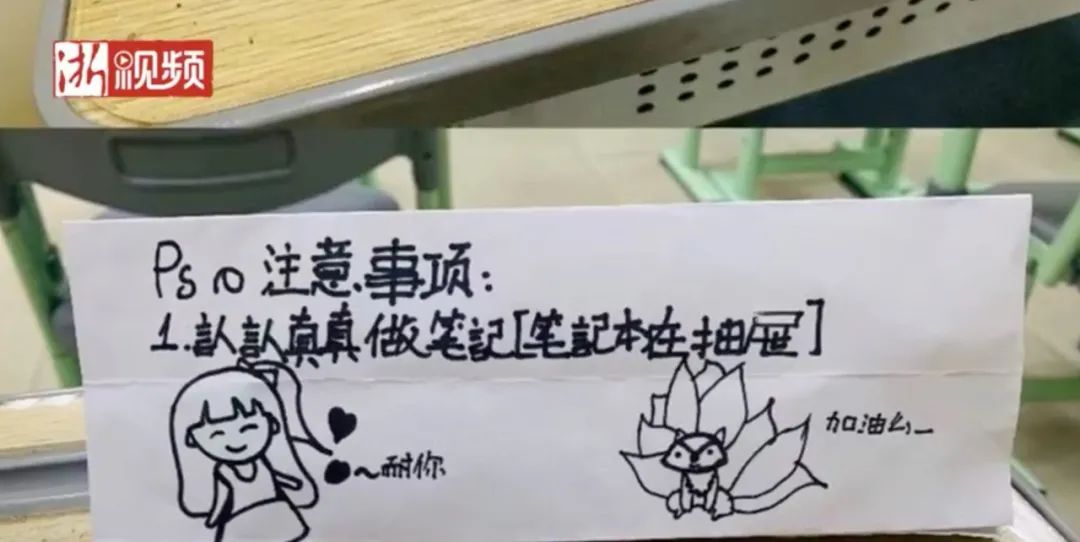 浙视频
Ps ∩ 注意事项:
1.認認真真做笔記[笔記本在抽屉]
~耐你
加油幺~